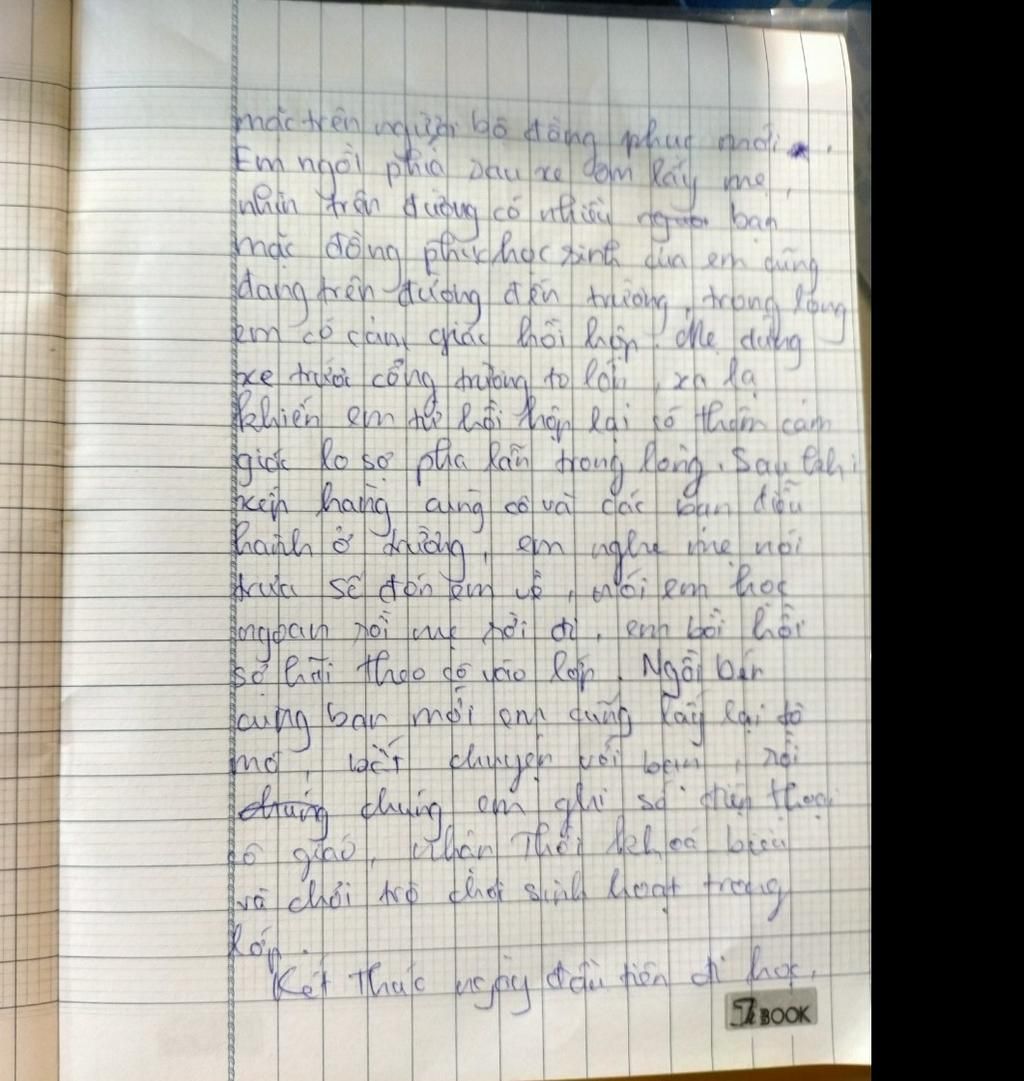 mặc trên người bộ đồng phục mới.
Em ngồi phía sau xe ôm lấy mẹ,
nhìn trên đường có nhiều bạn
mặc đồng phục học sinh của em cũng
đang trên đường đến trường, trong lòng
em có cảm giác hồi hộp. Mẹ dừng
xe trước cổng trường to lớn, xa lạ
khiến em từ hồi hộp lại có thêm cảm
giác lo sợ pha lẫn trong lòng. Sau khi
xếp hàng cùng cô và các bạn diễu
hành ở trường, em nghe mẹ nói
trưa sẽ đón em về, nói em học
ngoan rồi mẹ rời đi, em bồi hồi
sợ hãi theo cô vào lớp. Ngồi bên
cùng bạn mới em cũng lấy lại tò
mò, bắt chuyện với bạn, rồi
chúng em ghi số điện thoại
cô giáo, nhận thời khoá biểu
và chơi trò chơi sinh hoạt trong
lớp.
Kết thúc ngày đầu tiên đi học,
BOOK